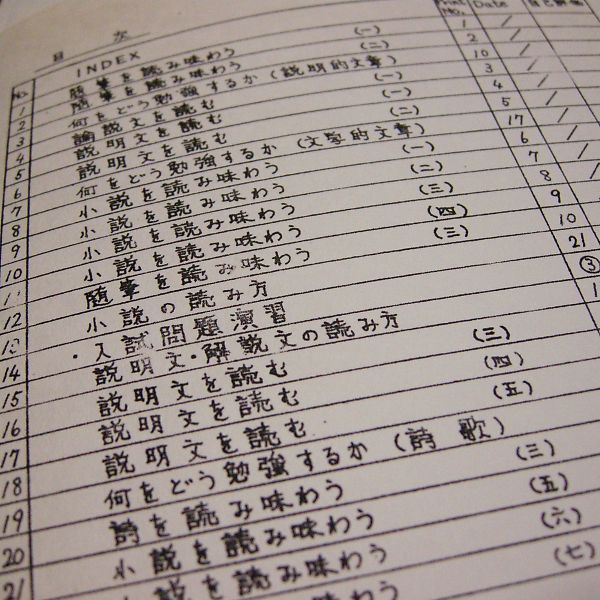 目次
No. INDEX Print No. Date 自己評価
1 随筆を読み味わう (一) 1 /
2 随筆を読み味わう (二) 2 /
3 何をどう勉強するか (説明的文章) 10 /
4 論説文を読む 3 /
5 説明文を読む (一) 4 /
6 説明文を読む (二) 5 /
7 何をどう勉強するか (文学的文章) 17 /
8 小説を読み味わう (一) 6 /
9 小説を読み味わう (二) 7 /
10 小説を読み味わう (三) 8 /
11 小説を読み味わう (四) 9
12 随筆を読み味わう (三) 10
13 小説の読み方 21
14 ・入試問題演習 ③
15 説明文・解説文の読み方
16 説明文を読む (三)
17 説明文を読む (四)
18 説明文を読む (五)
19 何をどう勉強するか (詩歌)
20 詩を読み味わう (三)
21 小説を読み味わう (五)
小説を読み味わう (六)
(七)